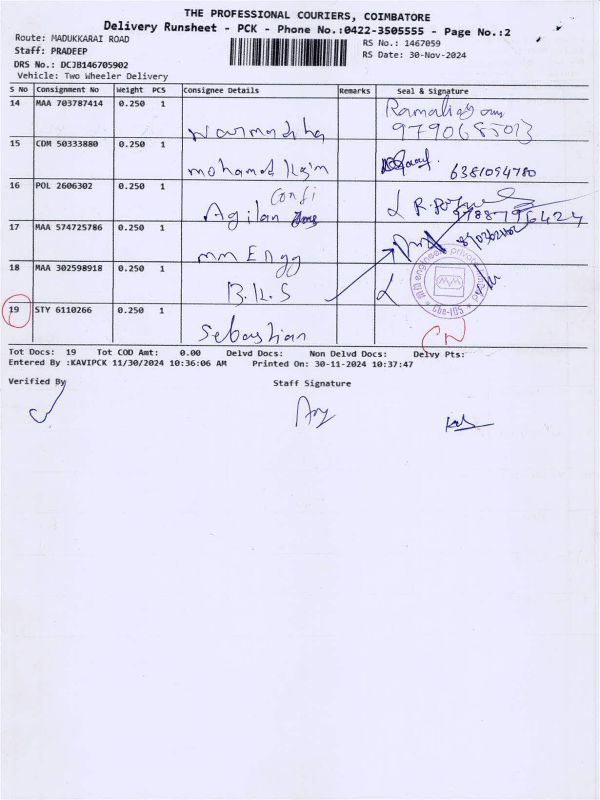 THE PROFESSIONAL COURIERS, COIMBATORE
Delivery Runsheet - PCK - Phone No.:0422-3505555 - Page No.:2
Route: MADUKKARAI ROAD
RS No.: 1467059
Staff: PRADEEP
RS Date: 30-Nov-2024
DRS No.: DCJB146705902
Vehicle: Two Wheeler Delivery
S No Consignment No Weight PCS Consignee Details Remarks Seal & Signature
14 MAA 703787414 0.250 1
15 CDM 50333880 0.250 1 mohamed 6381094780
16 POL 2606302 0.250 1 Agilan 9788796424
17 MAA 574725786 0.250 1 mm Engg
18 MAA 302598918 0.250 1 B.K.S
19 STY 6110266 0.250 1 Sebastian CN
Tot Docs: 19 Tot COD Amt: 0.00 Delvd Docs: Non Delvd Docs: Delvy Pts:
Entered By :KAVIPCK 11/30/2024 10:36:06 AM Printed On: 30-11-2024 10:37:47
Verified By Staff Signature